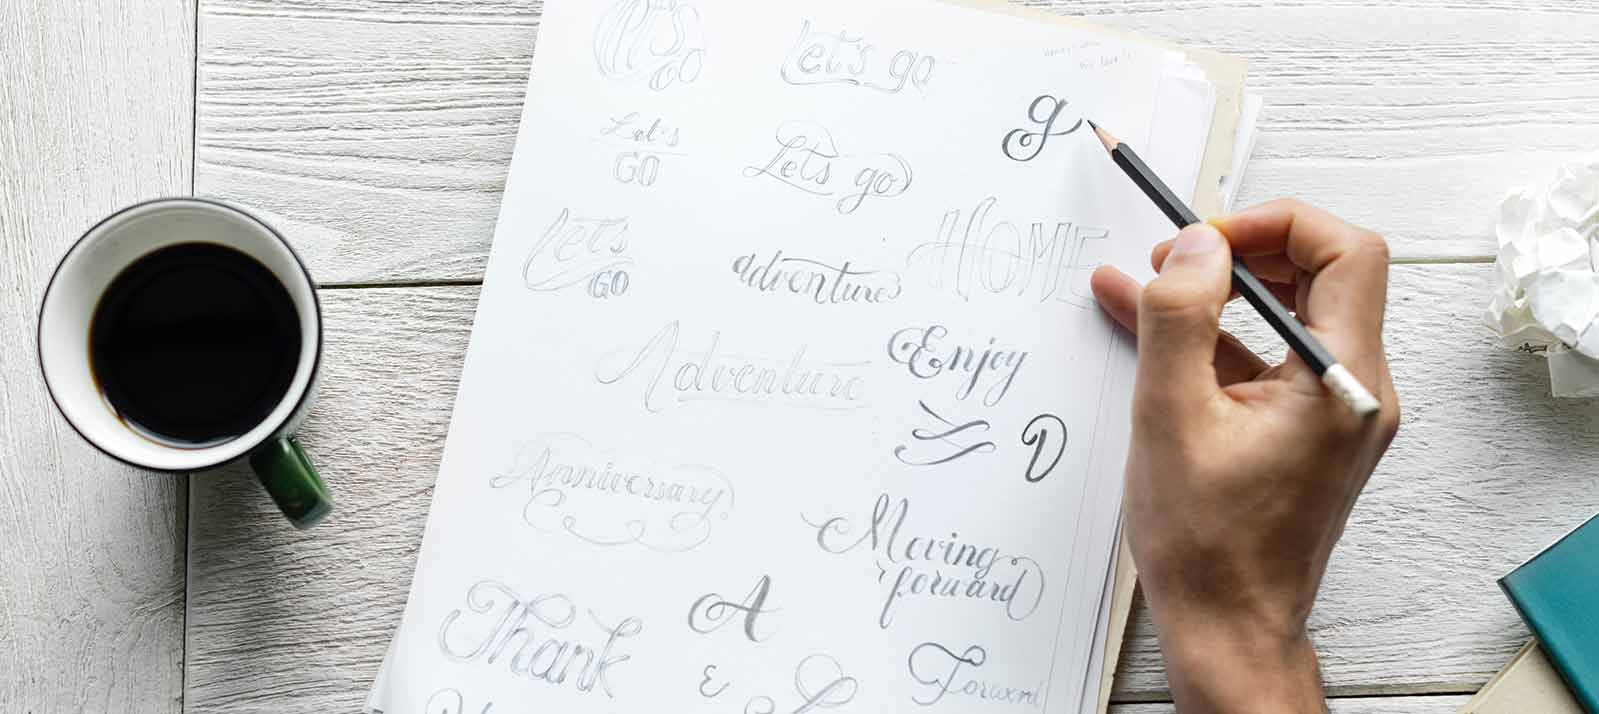 Let's go
Let's go
Let's
GO
Let's go
g
Let's
GO
adventure
HOME
Adventure
Enjoy
D
Anniversary
Moving
forward
Thank
A
&
Forward